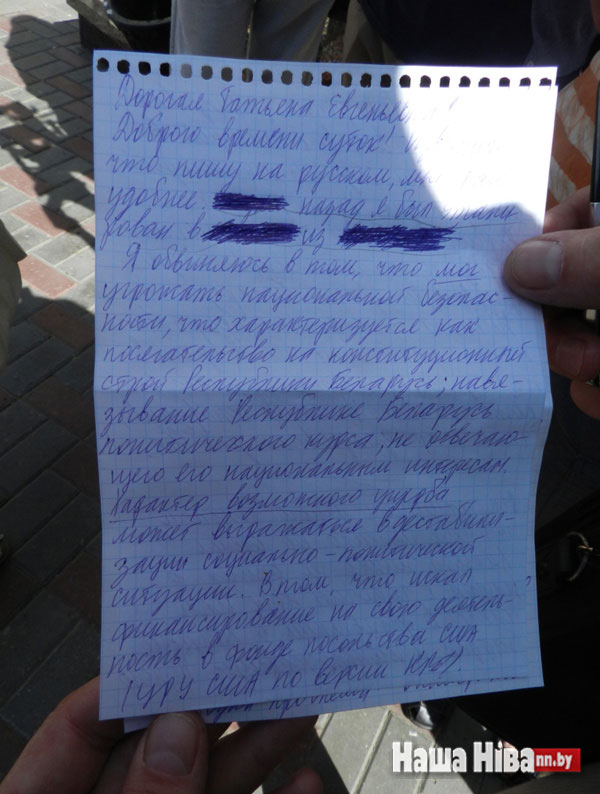 Дорогая Татьяна Евгеньевна!
Доброго времени суток!
что пишу на русском, мне так
удобнее. назад я был этапи
рован в из
Я обвиняюсь в том, что мог
угрожать национальной безопас-
ности, что характеризуется как
посягательство на конституционный
строй Республики Беларусь; навя-
зывание Республике Беларусь
политического курса, не отвечаю-
щего его национальным интересам.
Характер возможного ущерба
может выражаться в дестабили-
зации социально-политической
ситуации. В том, что искал
финансирование на свою деятель-
ность в фонде посольства США
(ЦРУ США по версии КГБ)
Наша Ніва nn.by